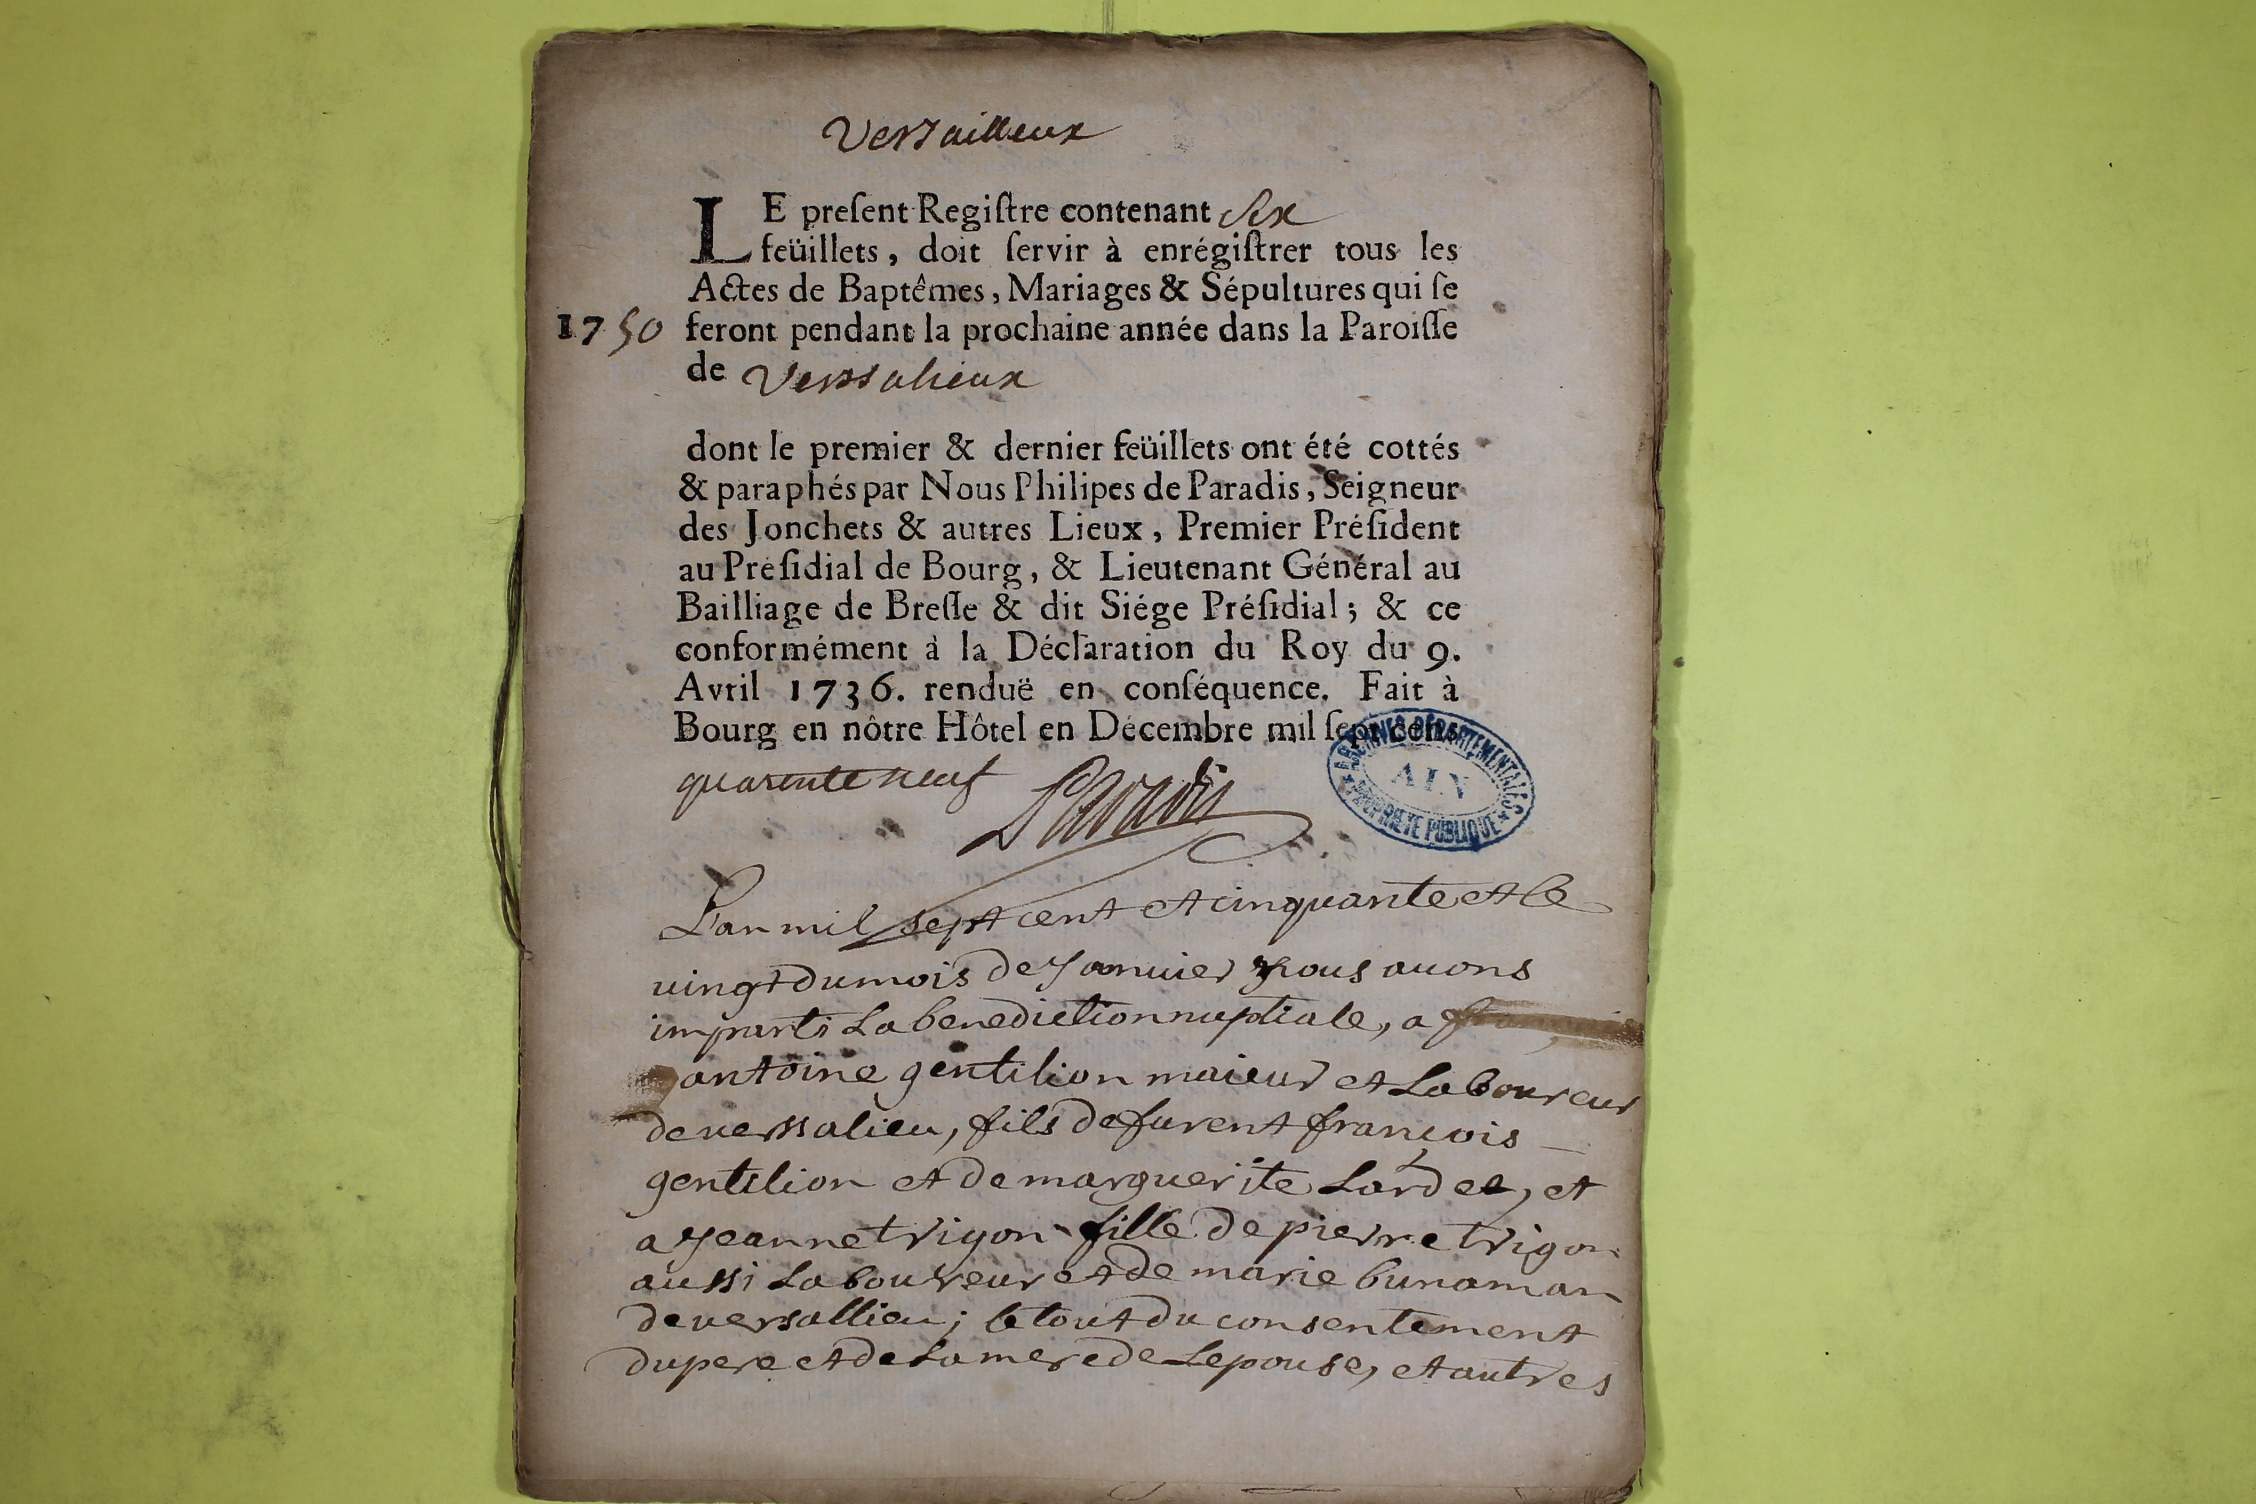 Versailleux
LE preſent Regiſtre contenant Six
feüillets, doit ſervir à enrégiſtrer tous les
Actes de Baptêmes, Mariages & Sépultures qui ſe
1750 feront pendant la prochaine année dans la Paroiſſe
de Verssalieux
dont le premier & dernier feüillets ont été cottés
& paraphés par Nous Philipes de Paradis, Seigneur
des Jonchets & autres Lieux, Premier Préſident
au Préſidial de Bourg, & Lieutenant Général au
Bailliage de Breſſe & dit Siége Préſidial; & ce
conformément à la Déclaration du Roy du 9.
Avril 1736. renduë en conſéquence. Fait à
Bourg en nôtre Hôtel en Décembre mil ſept cens
quarente neuf Paradis
ARCHIVES DÉPARTEMENTALES
AIN
PROPRIÉTÉ PUBLIQUE
L'an mil sept cent et cinquante et le
vingt du mois de Januier nous auons
imparti La benediction nuptiale, a
antoine gentilion maieur et Laboureur
de verssalieu, fils de furent françois
gentilion et de marguerite Lardet, et
a Jeanne trigon fille de pierre trigon
aussi Laboureur et de marie bunaman
de versallieu; le tout du consentement
du pere et de La mere de Lepouse, et autres